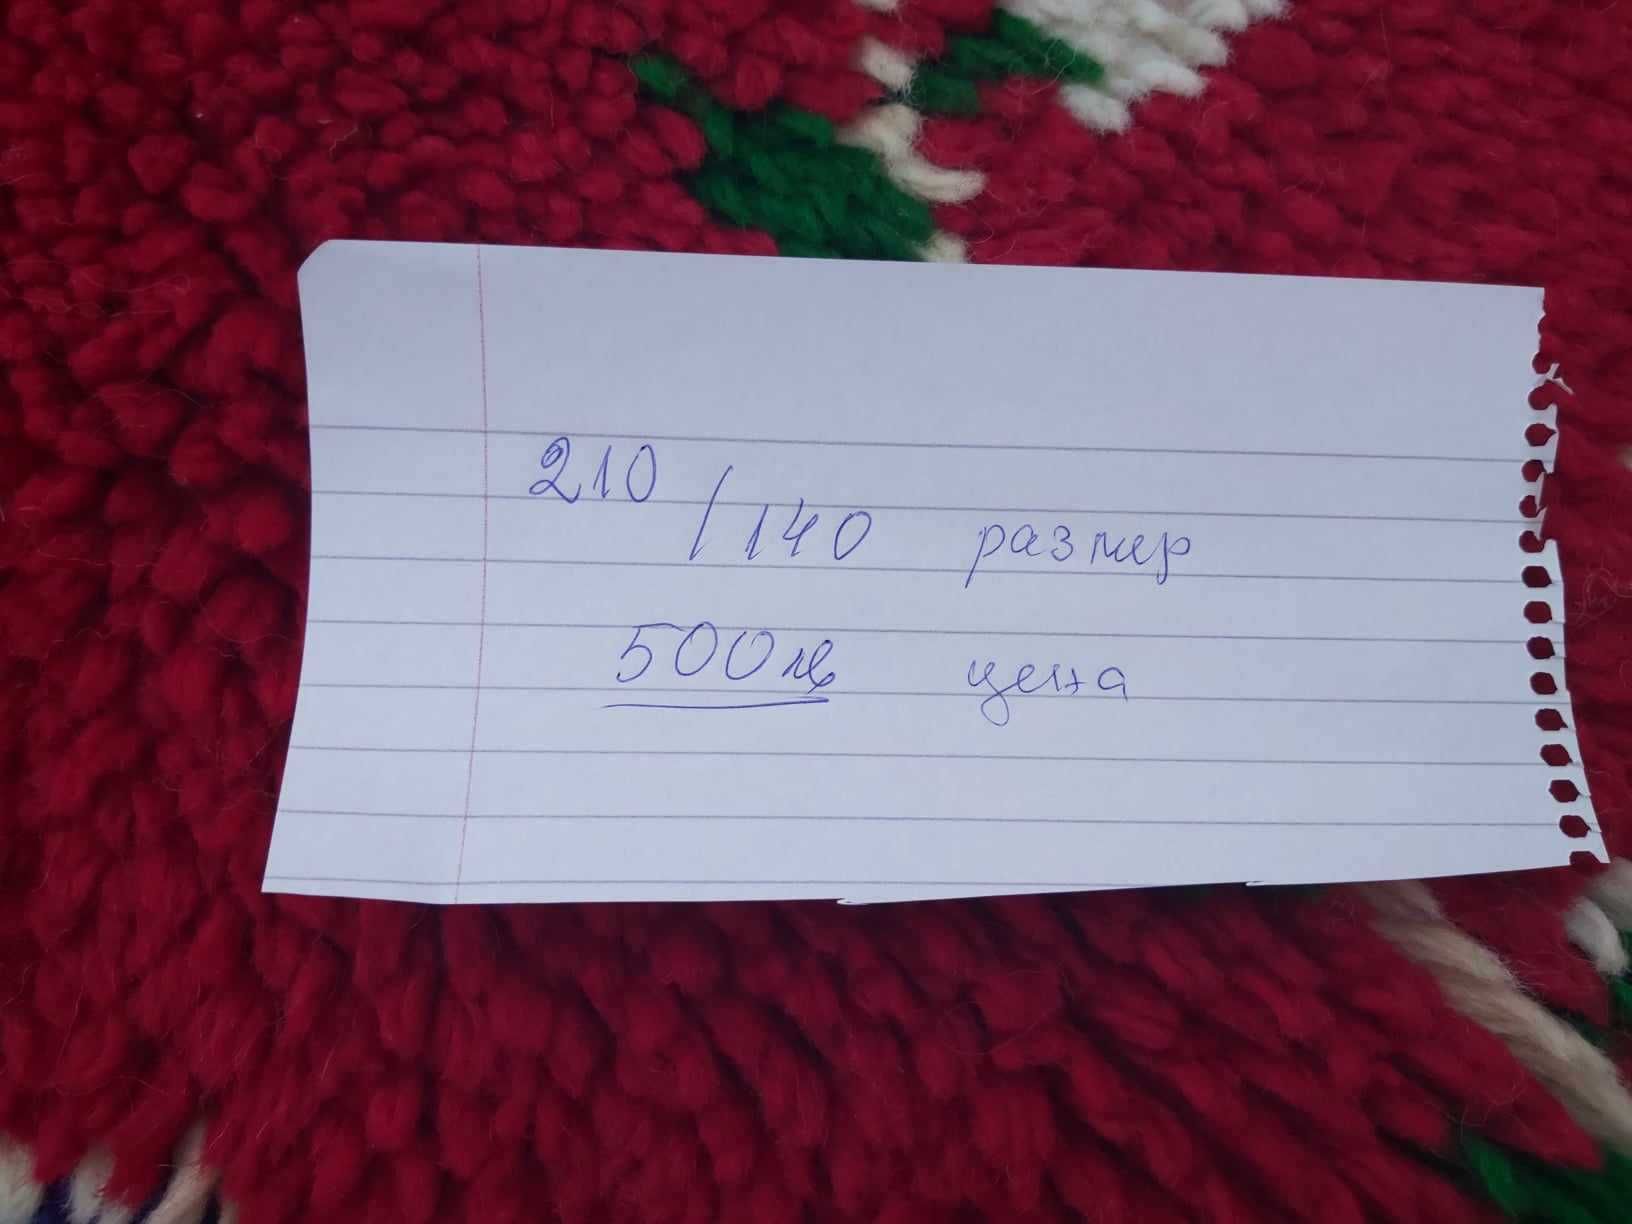 210/140 размер
500лв цена